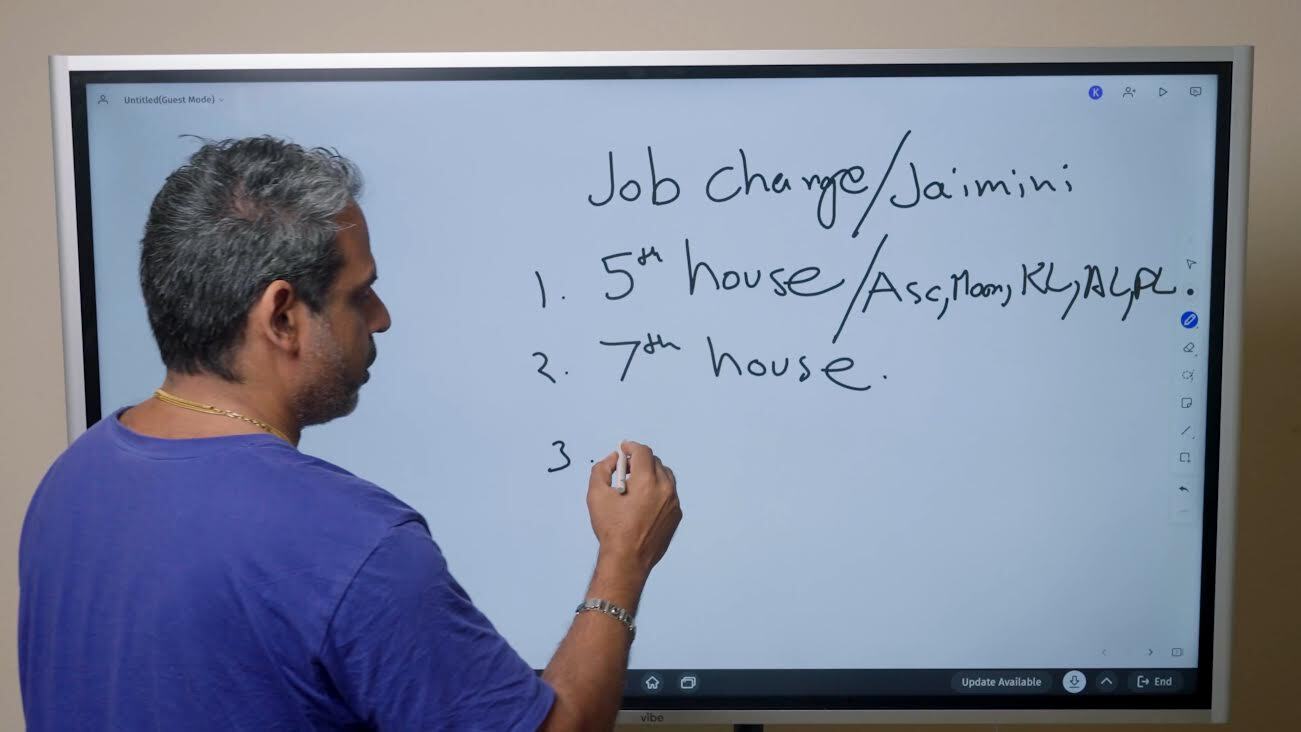 Untitled(Guest Mode)
K
Job change/Jaimini
1. 5th house/Asc, Moon, KL, AL, PL.
2. 7th house.
3.
Update Available
End
vibe